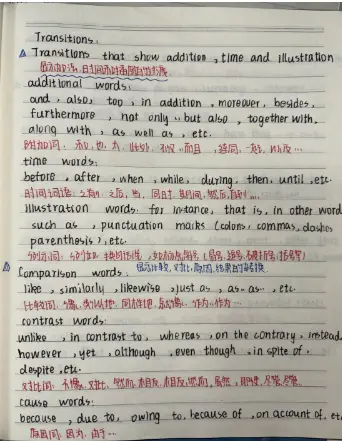 Transitions:
△ Transitions that show addition, time and illustration
additional words:
and, also, too, in addition, moreover, besides,
furthermore, not only... but also, together with,
along with, as well as, etc.
附加词: 和, 也,
time words:
before, after, when, while, during, then, until, etc.
时间词语: 之前, 之后, 当, 同时, 期间, 然后, 直到...
illustration words: for instance, that is, in other word
such as, punctuation marks (colons, commas, dashes
parenthesis), etc.
△ Comparison words:
like, similarly, likewise, just as, as...as..., etc.
contrast words:
unlike, in contrast to, whereas, on the contrary, instead,
however, yet, although, even though, in spite of,
despite, etc.
对比词: 不像, 对比, 然而, 相反,
cause words:
because, due to, owing to, because of, on account of, et
原因词: 因为, 由于...